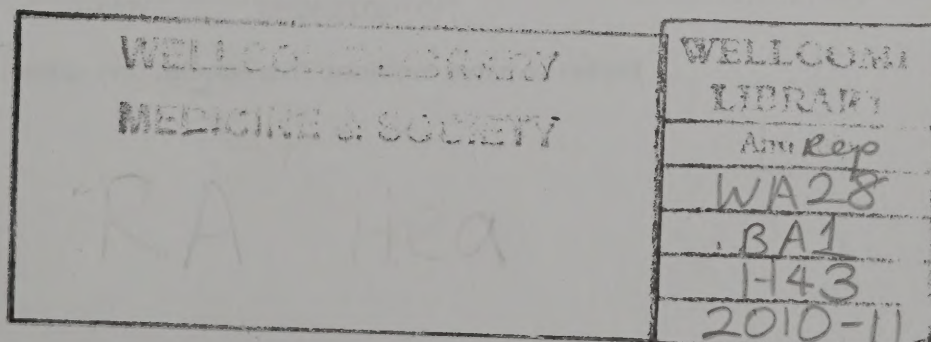 WELLCOME LIBRARY
MEDICINE & SOCIETY
RA Hea
WELLCOME
LIBRARY
Ann Rep
WA28
.BA1
H43
2010-11